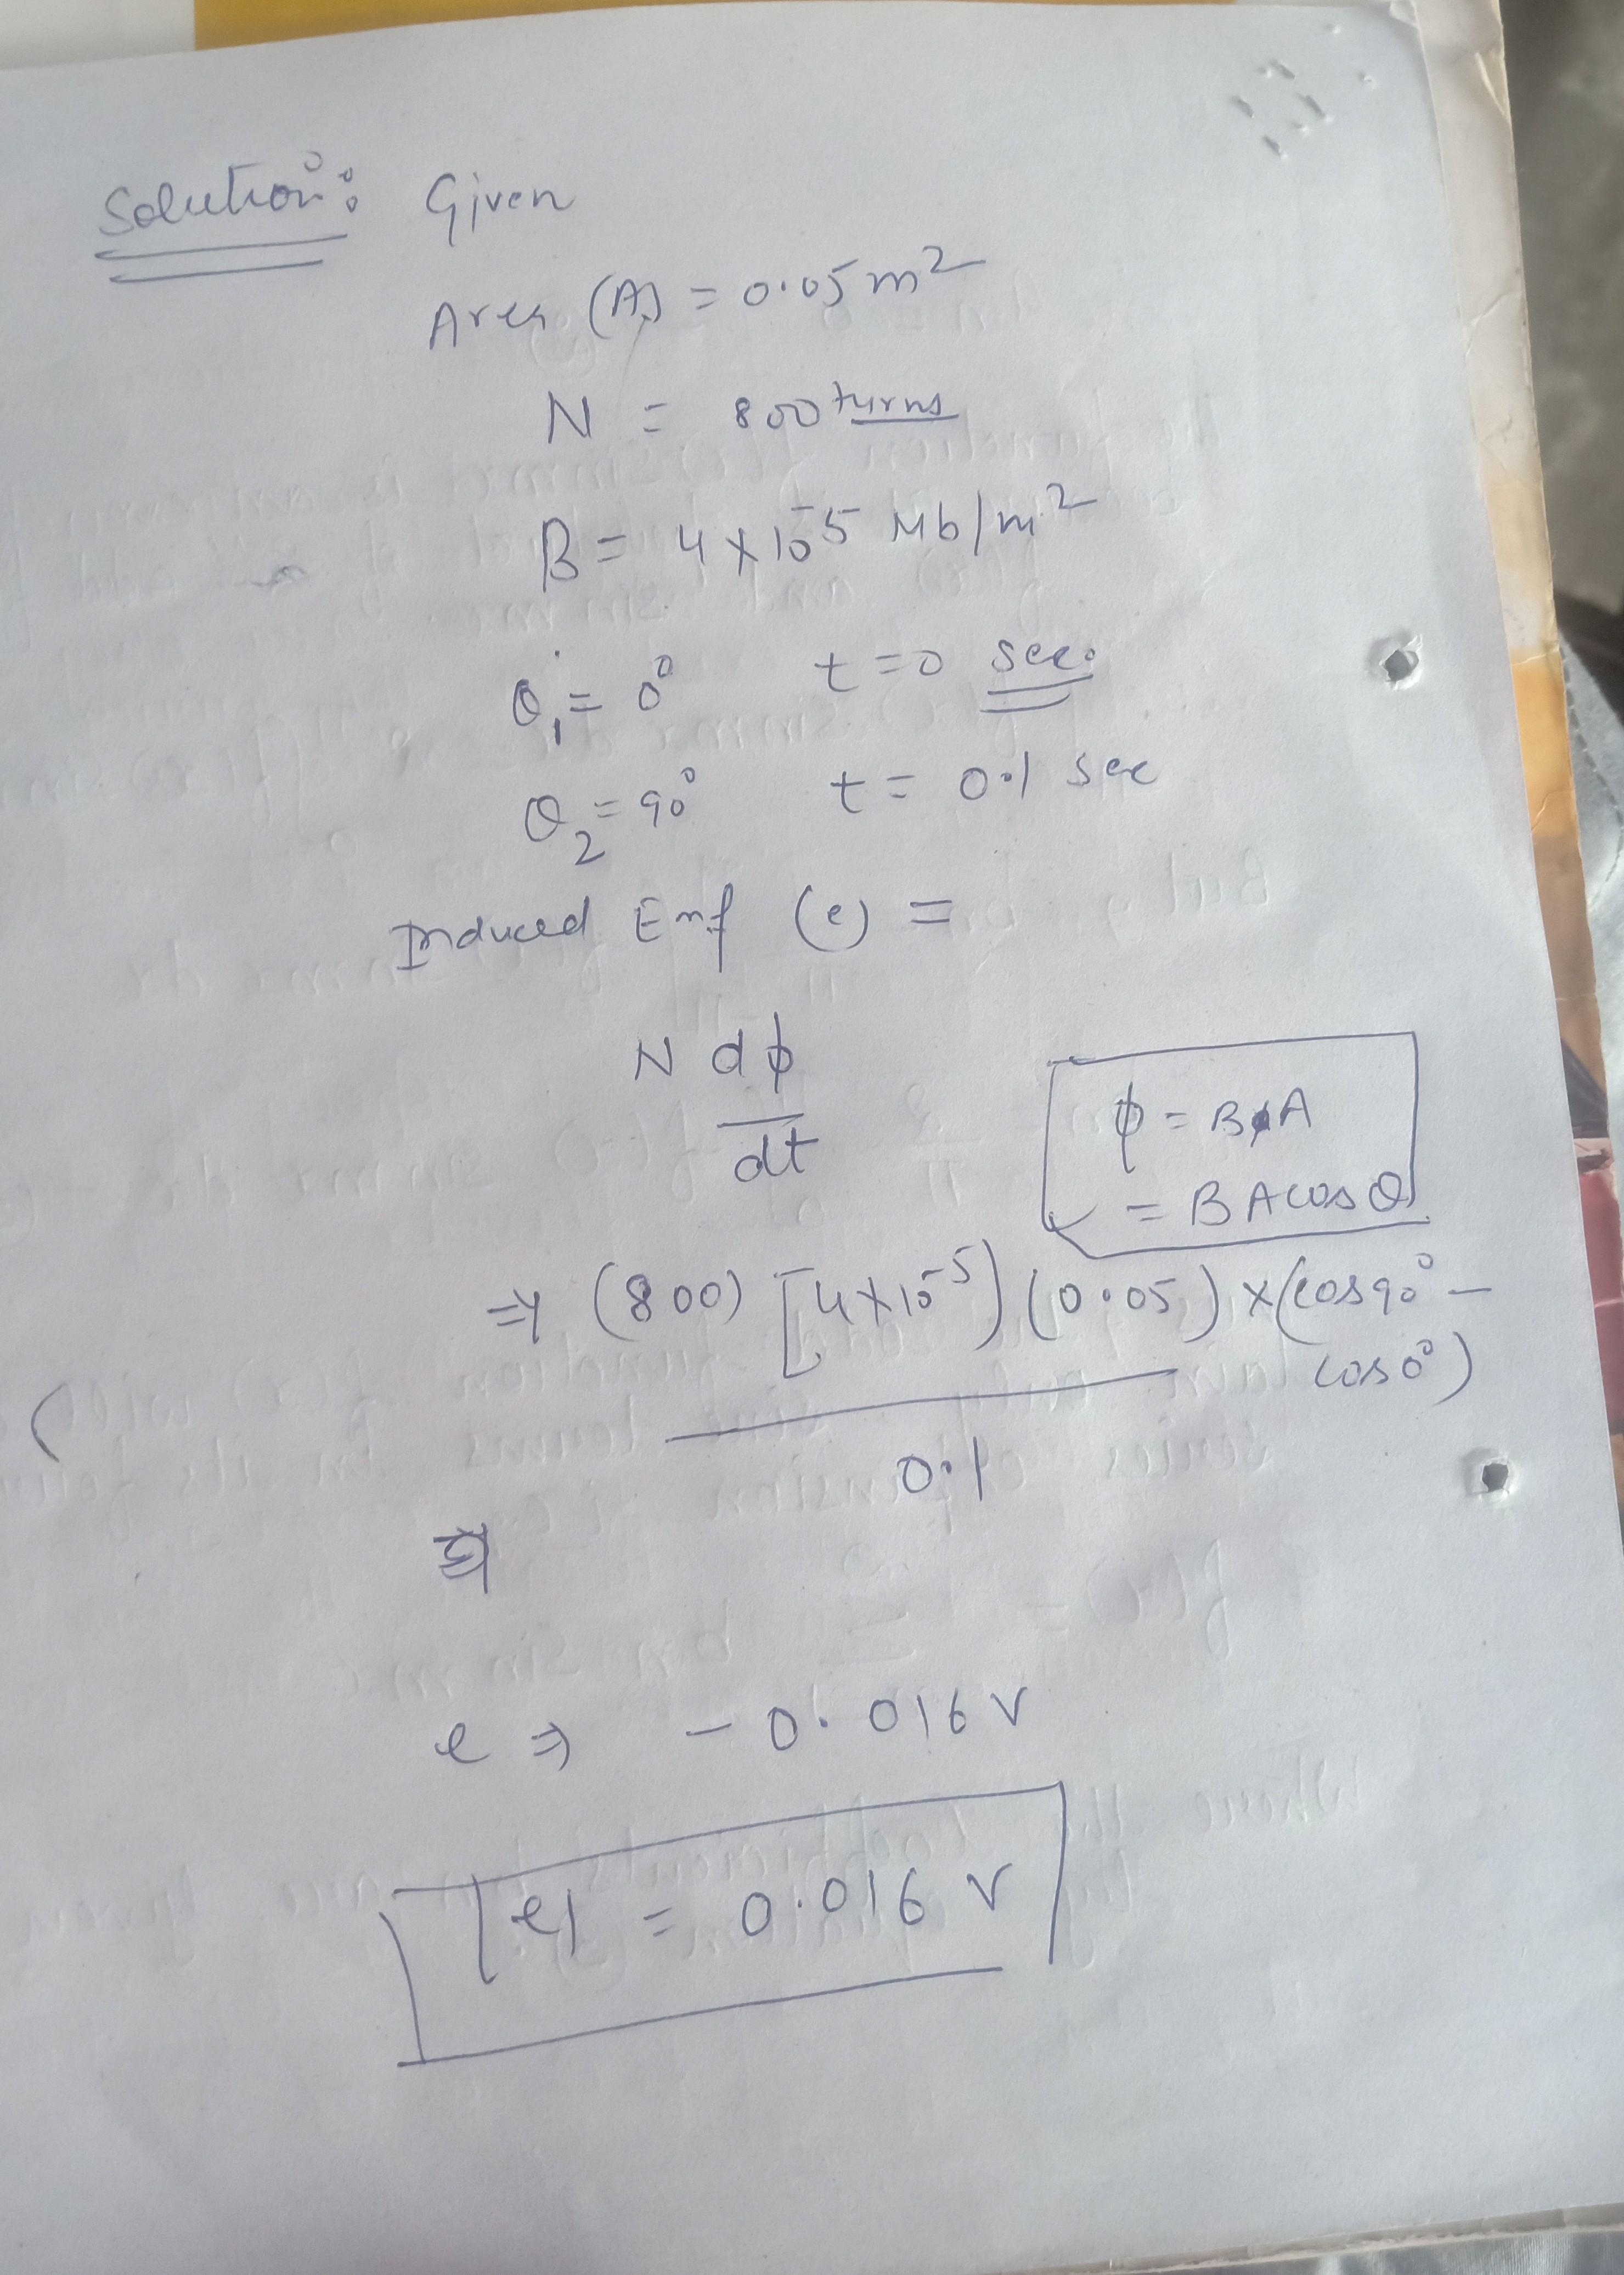 Solution: Given
Area (A) = 0.05 m²
N = 800 turns
B = 4 × 10⁻⁵ Wb/m²
θ₁ = 0° t = 0 sec.
θ₂ = 90° t = 0.1 sec
Induced Emf (e) =
N dϕ
dt
ϕ = B A
= BA cos θ
⇒ (800) [4×10⁻⁵) (0.05) × (cos 90° –
cos 0°)
0.1
e ⇒ – 0.016 V
|e| = 0.016 V